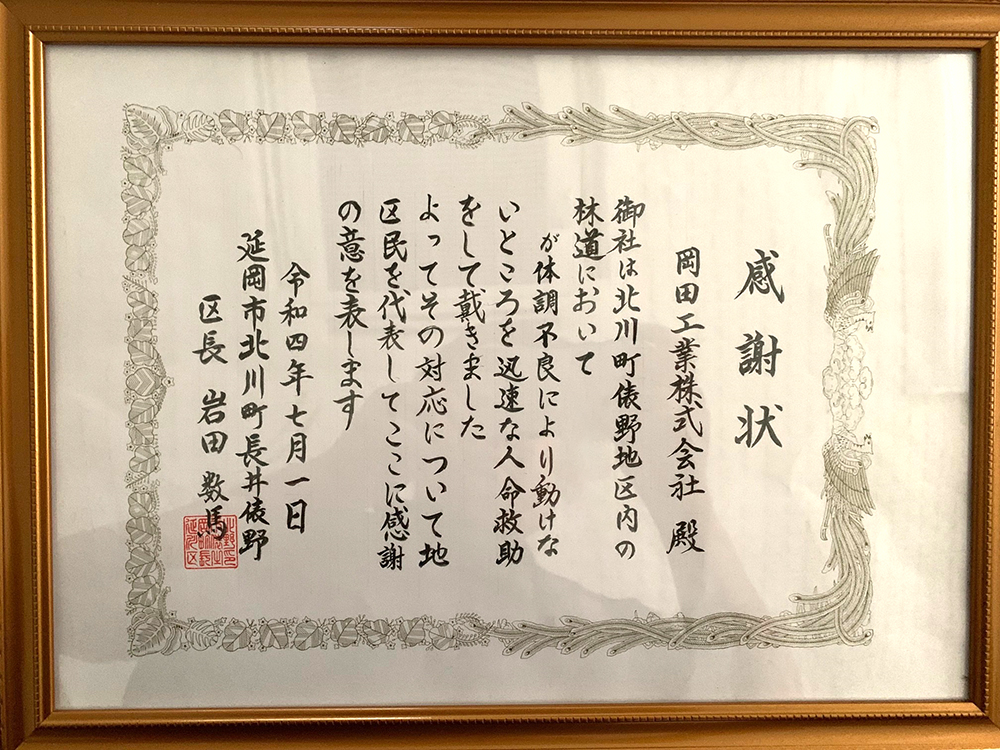 感謝状
岡田工業株式会社 殿
御社は北川町俵野地区内の
林道において
が体調不良により動けな
いところを迅速な人命救助
をして戴きました
よってその対応について地
区民を代表してここに感謝
の意を表します
令和四年七月一日
延岡市北川町長井俵野
区長 岩田 数馬